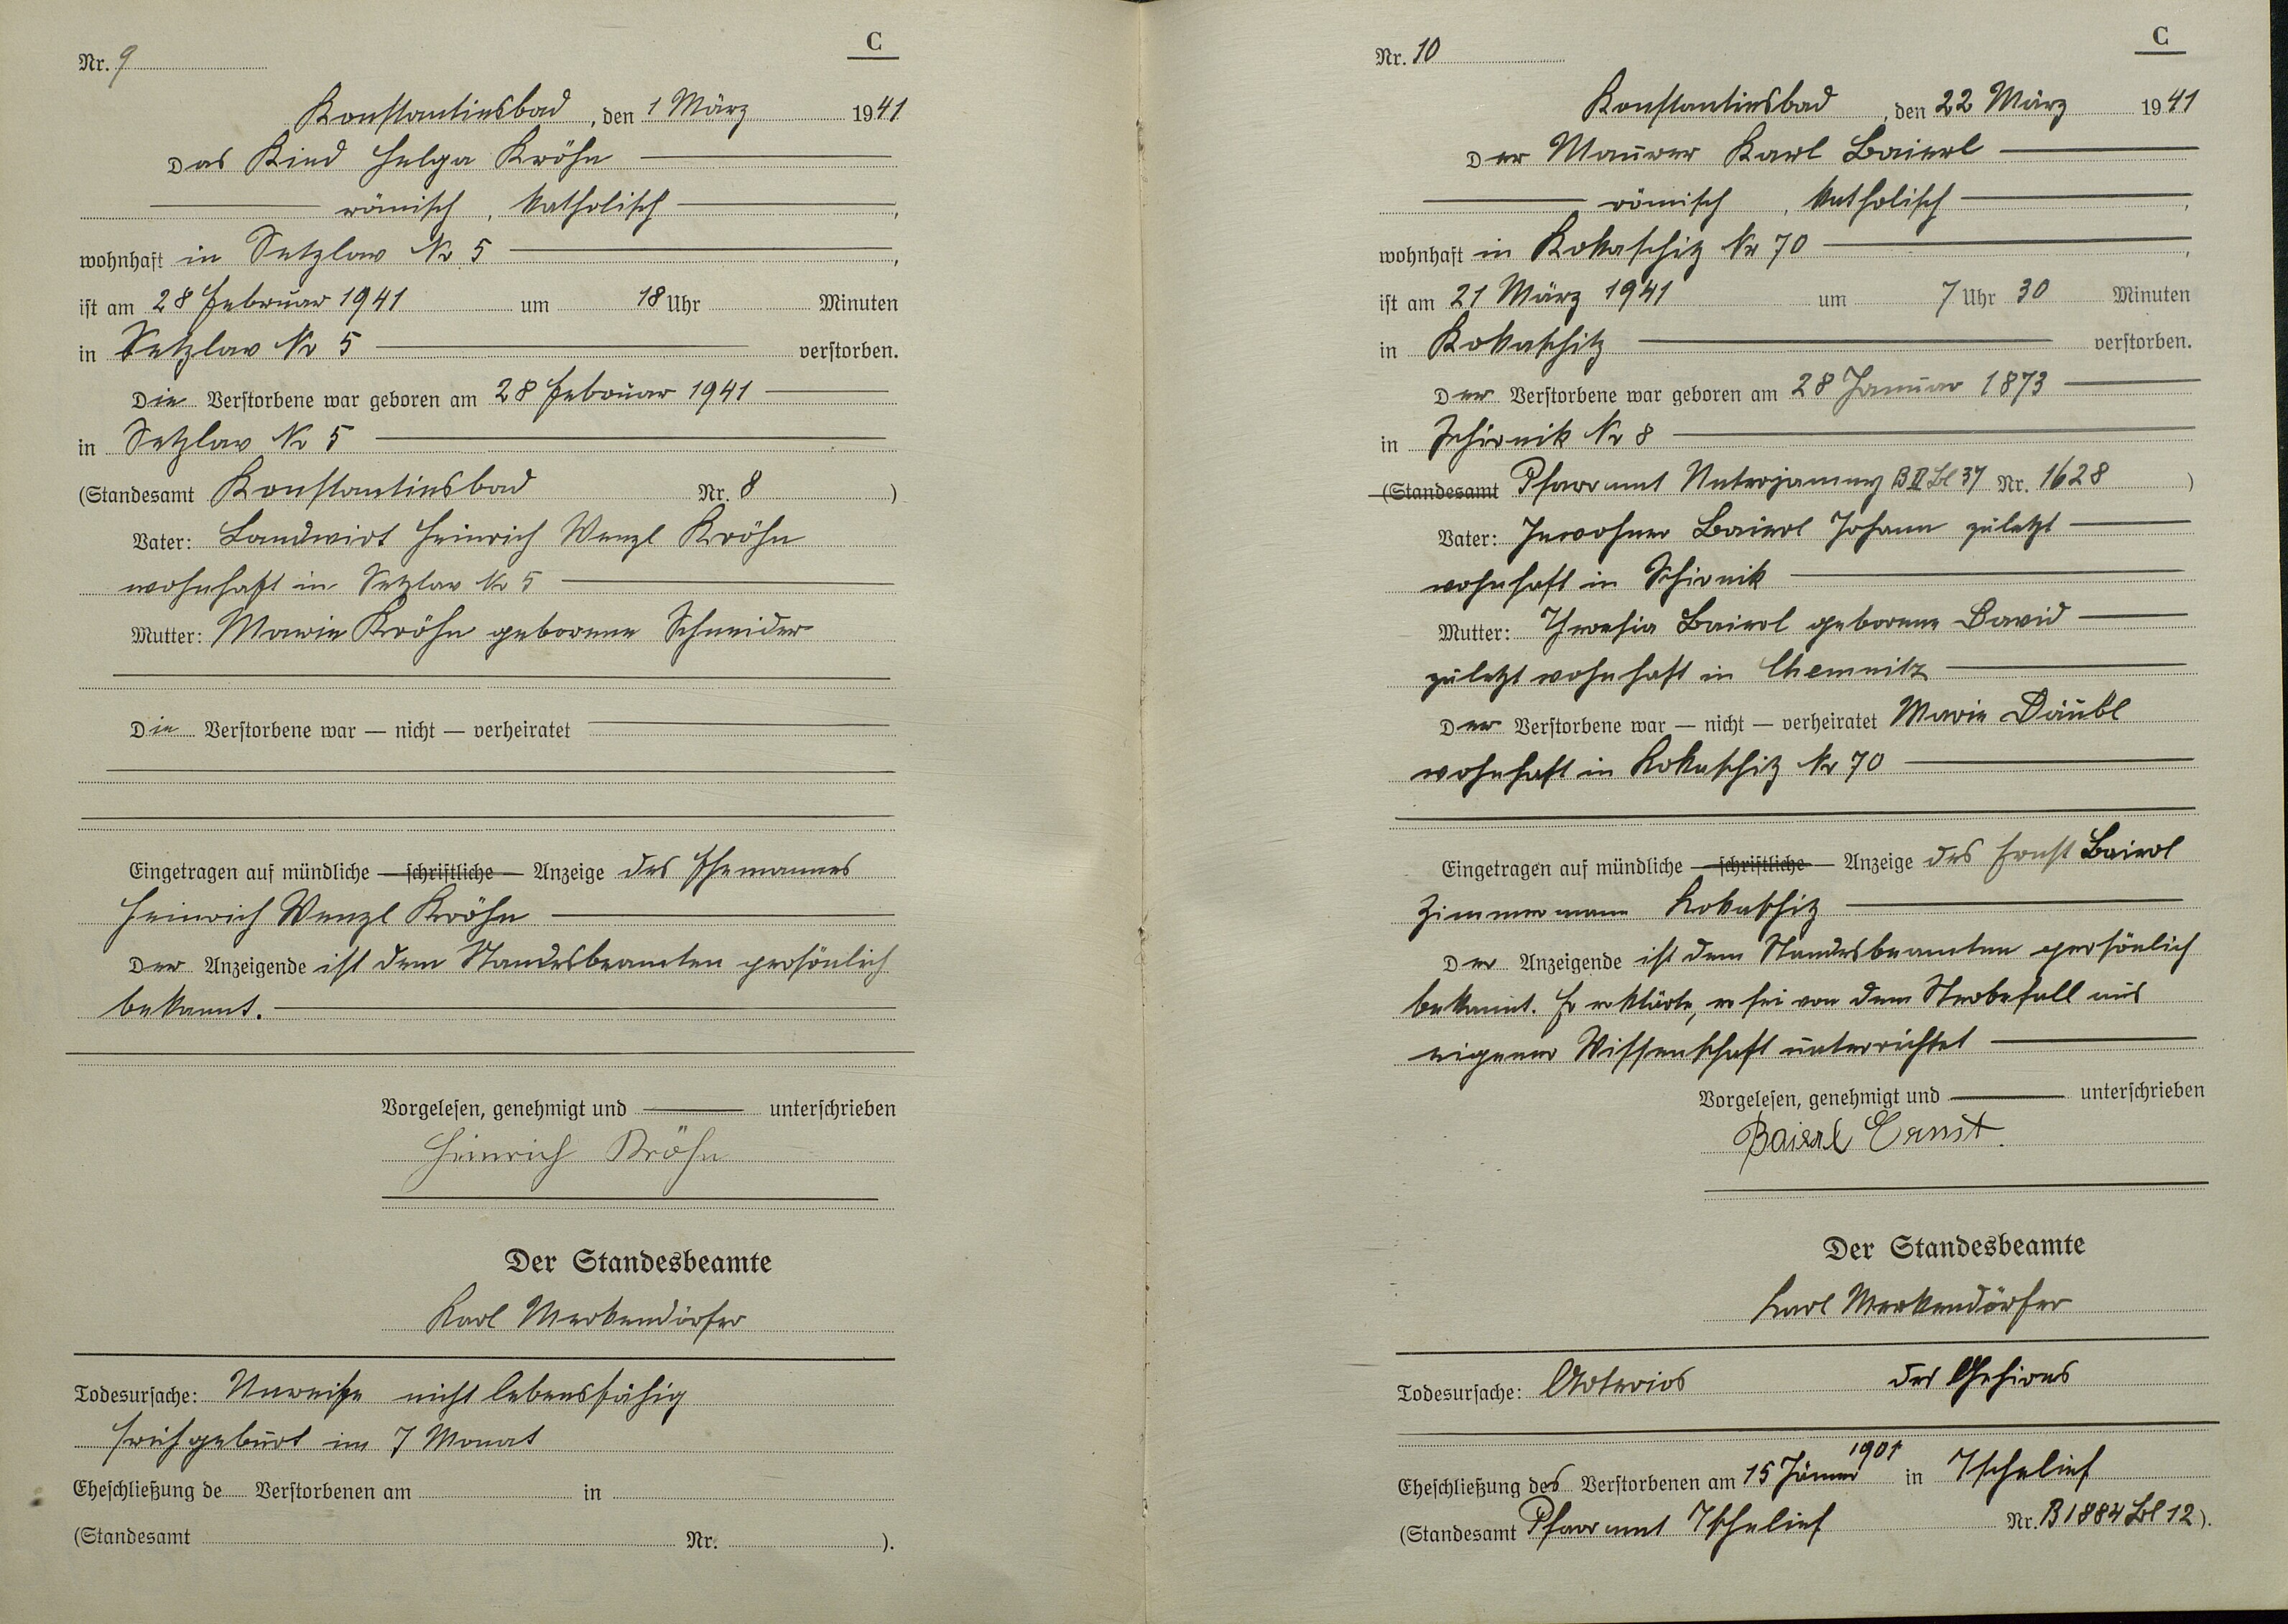 C
Nr. 9
Konstantinsbad, den 1 März 1941
Das Kind Helga Kröhn
römisch, katholisch,
wohnhaft in Setzlav Nr 5,
ist am 28 Februar 1941 um 18 Uhr Minuten
in Setzlav Nr 5 verstorben.
Die Verstorbene war geboren am 28 Februar 1941
in Setzlav Nr 5
(Standesamt Konstantinsbad Nr. 8)
Vater: Landwirt Heinrich Wenzl Kröhn
wohnhaft in Setzlav Nr 5
Mutter: Marie Kröhn geborene Schneider
Die Verstorbene war — nicht — verheiratet
Eingetragen auf mündliche — schriftliche — Anzeige des Ehemannes
Heinrich Wenzl Kröhn
Der Anzeigende ist dem Standesbeamten persönlich
bekannt.
Vorgelesen, genehmigt und unterschrieben
Heinrich Kröhn
Der Standesbeamte
Karl Merkendörfer
Todesursache: Unreife nicht lebensfähig
Frühgeburt im 7 Monat
Eheschließung de Verstorbenen am in
(Standesamt Nr. ).
C
Nr. 10
Konstantinsbad, den 22 März 1941
Der Maurer Karl Baierl
römisch, katholisch,
wohnhaft in Kokaschitz Nr 70,
ist am 21 März 1941 um 7 Uhr 30 Minuten
in Kokaschitz verstorben.
Der Verstorbene war geboren am 28 Januar 1873
in Schirnik Nr 8
(Standesamt Pfarramt Unterjamny B II Bl 37 Nr. 1628)
Vater: Inwohner Baierl Johann zuletzt
wohnhaft in Schirnik
Mutter: Theresia Baierl geborene David
zuletzt wohnhaft in Chemnitz
Der Verstorbene war — nicht — verheiratet Marie Däubl
wohnhaft in Kokaschitz Nr 70
Eingetragen auf mündliche — schriftliche — Anzeige des Ernst Baierl
Zimmermann Kokaschitz
Der Anzeigende ist dem Standesbeamten persönlich
bekannt. Er erklärte, er sei von dem Sterbefall aus
eigener Wissenschaft unterrichtet
Vorgelesen, genehmigt und unterschrieben
Baierl Ernst.
Der Standesbeamte
Karl Merkendörfer
Todesursache: des Gehirns
Eheschließung des Verstorbenen am 15 Jänner 1901 in Tschelief
(Standesamt Pfarramt Tschelief Nr. B 1884 Bl 12).